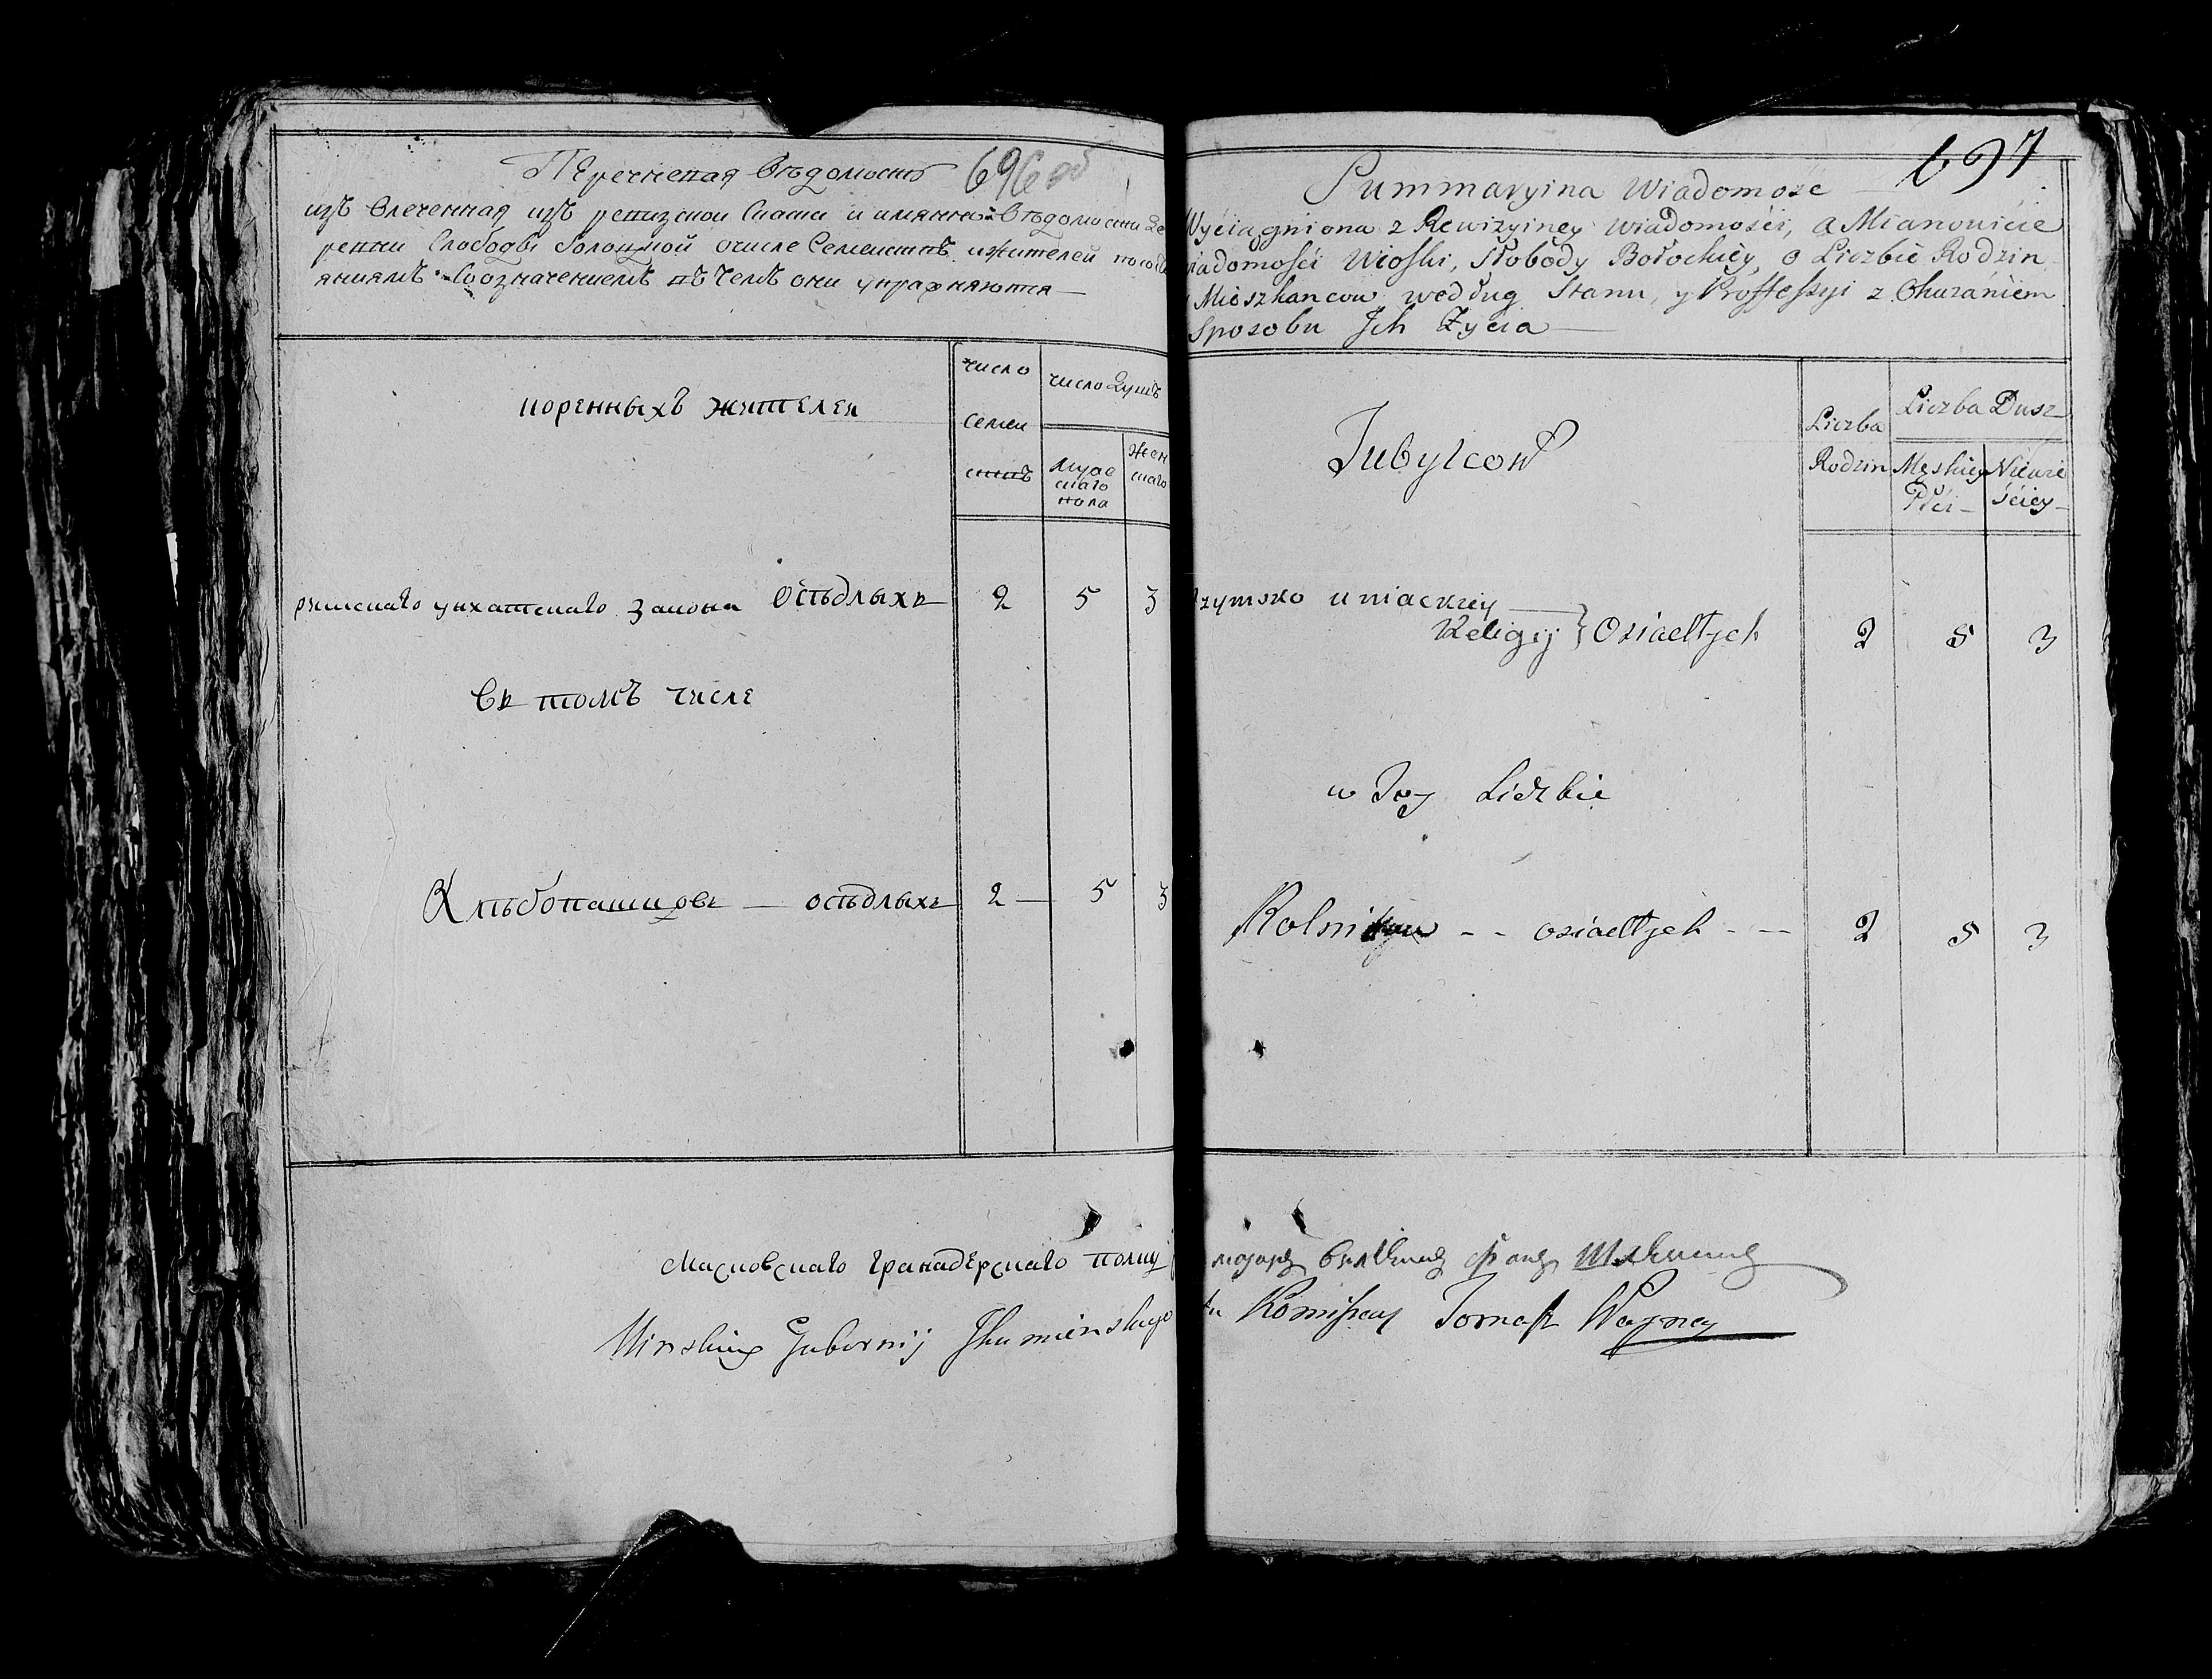 Перечневая Вѣдомость
696 об
изъ влеченная изъ ревизской Скаски и имянной Вѣдомости де
ревни Слободы Болоцкой очисле Семействъ ижителей пососто
яниямъ Соозначениемъ въ чемъ они упражняются
коренныхъ жителей
число
семей
ствъ
число душъ
Муже
скаго
пола
Жен
скаго
римскаго унхатскаго закона осѣдлыхъ 2 5 3
Въ томъ числе
Хлѣбопашцовъ — осѣдлыхъ 2 — 5 3
Московскаго гранадерскаго полку
Minskiey Gubernij Jhumienskiego
697
Summaryina Wiadomość
Wyciągniona z Rewizyiney Wiadomości, a Mianowicie
wiadomości Wioski, Słobody Bołockiey, o Liczbie Rodzin
Mieszkancow według Stanu, y Proffessyi z Okazaniem
Sposobu Jch Zycia
Tubylcow
Liczba
Rodzin
Liczba Dusz
Męskiey
Płci
Niewie
ściey
Rzymsko uniackiey
Religij } Osiadłych 2 5 3
w Tey Liczbie
Rolnikow - - osiadłych - - 2 5 3
маіоръ фонъ
Komissarz Tomasz Wagner